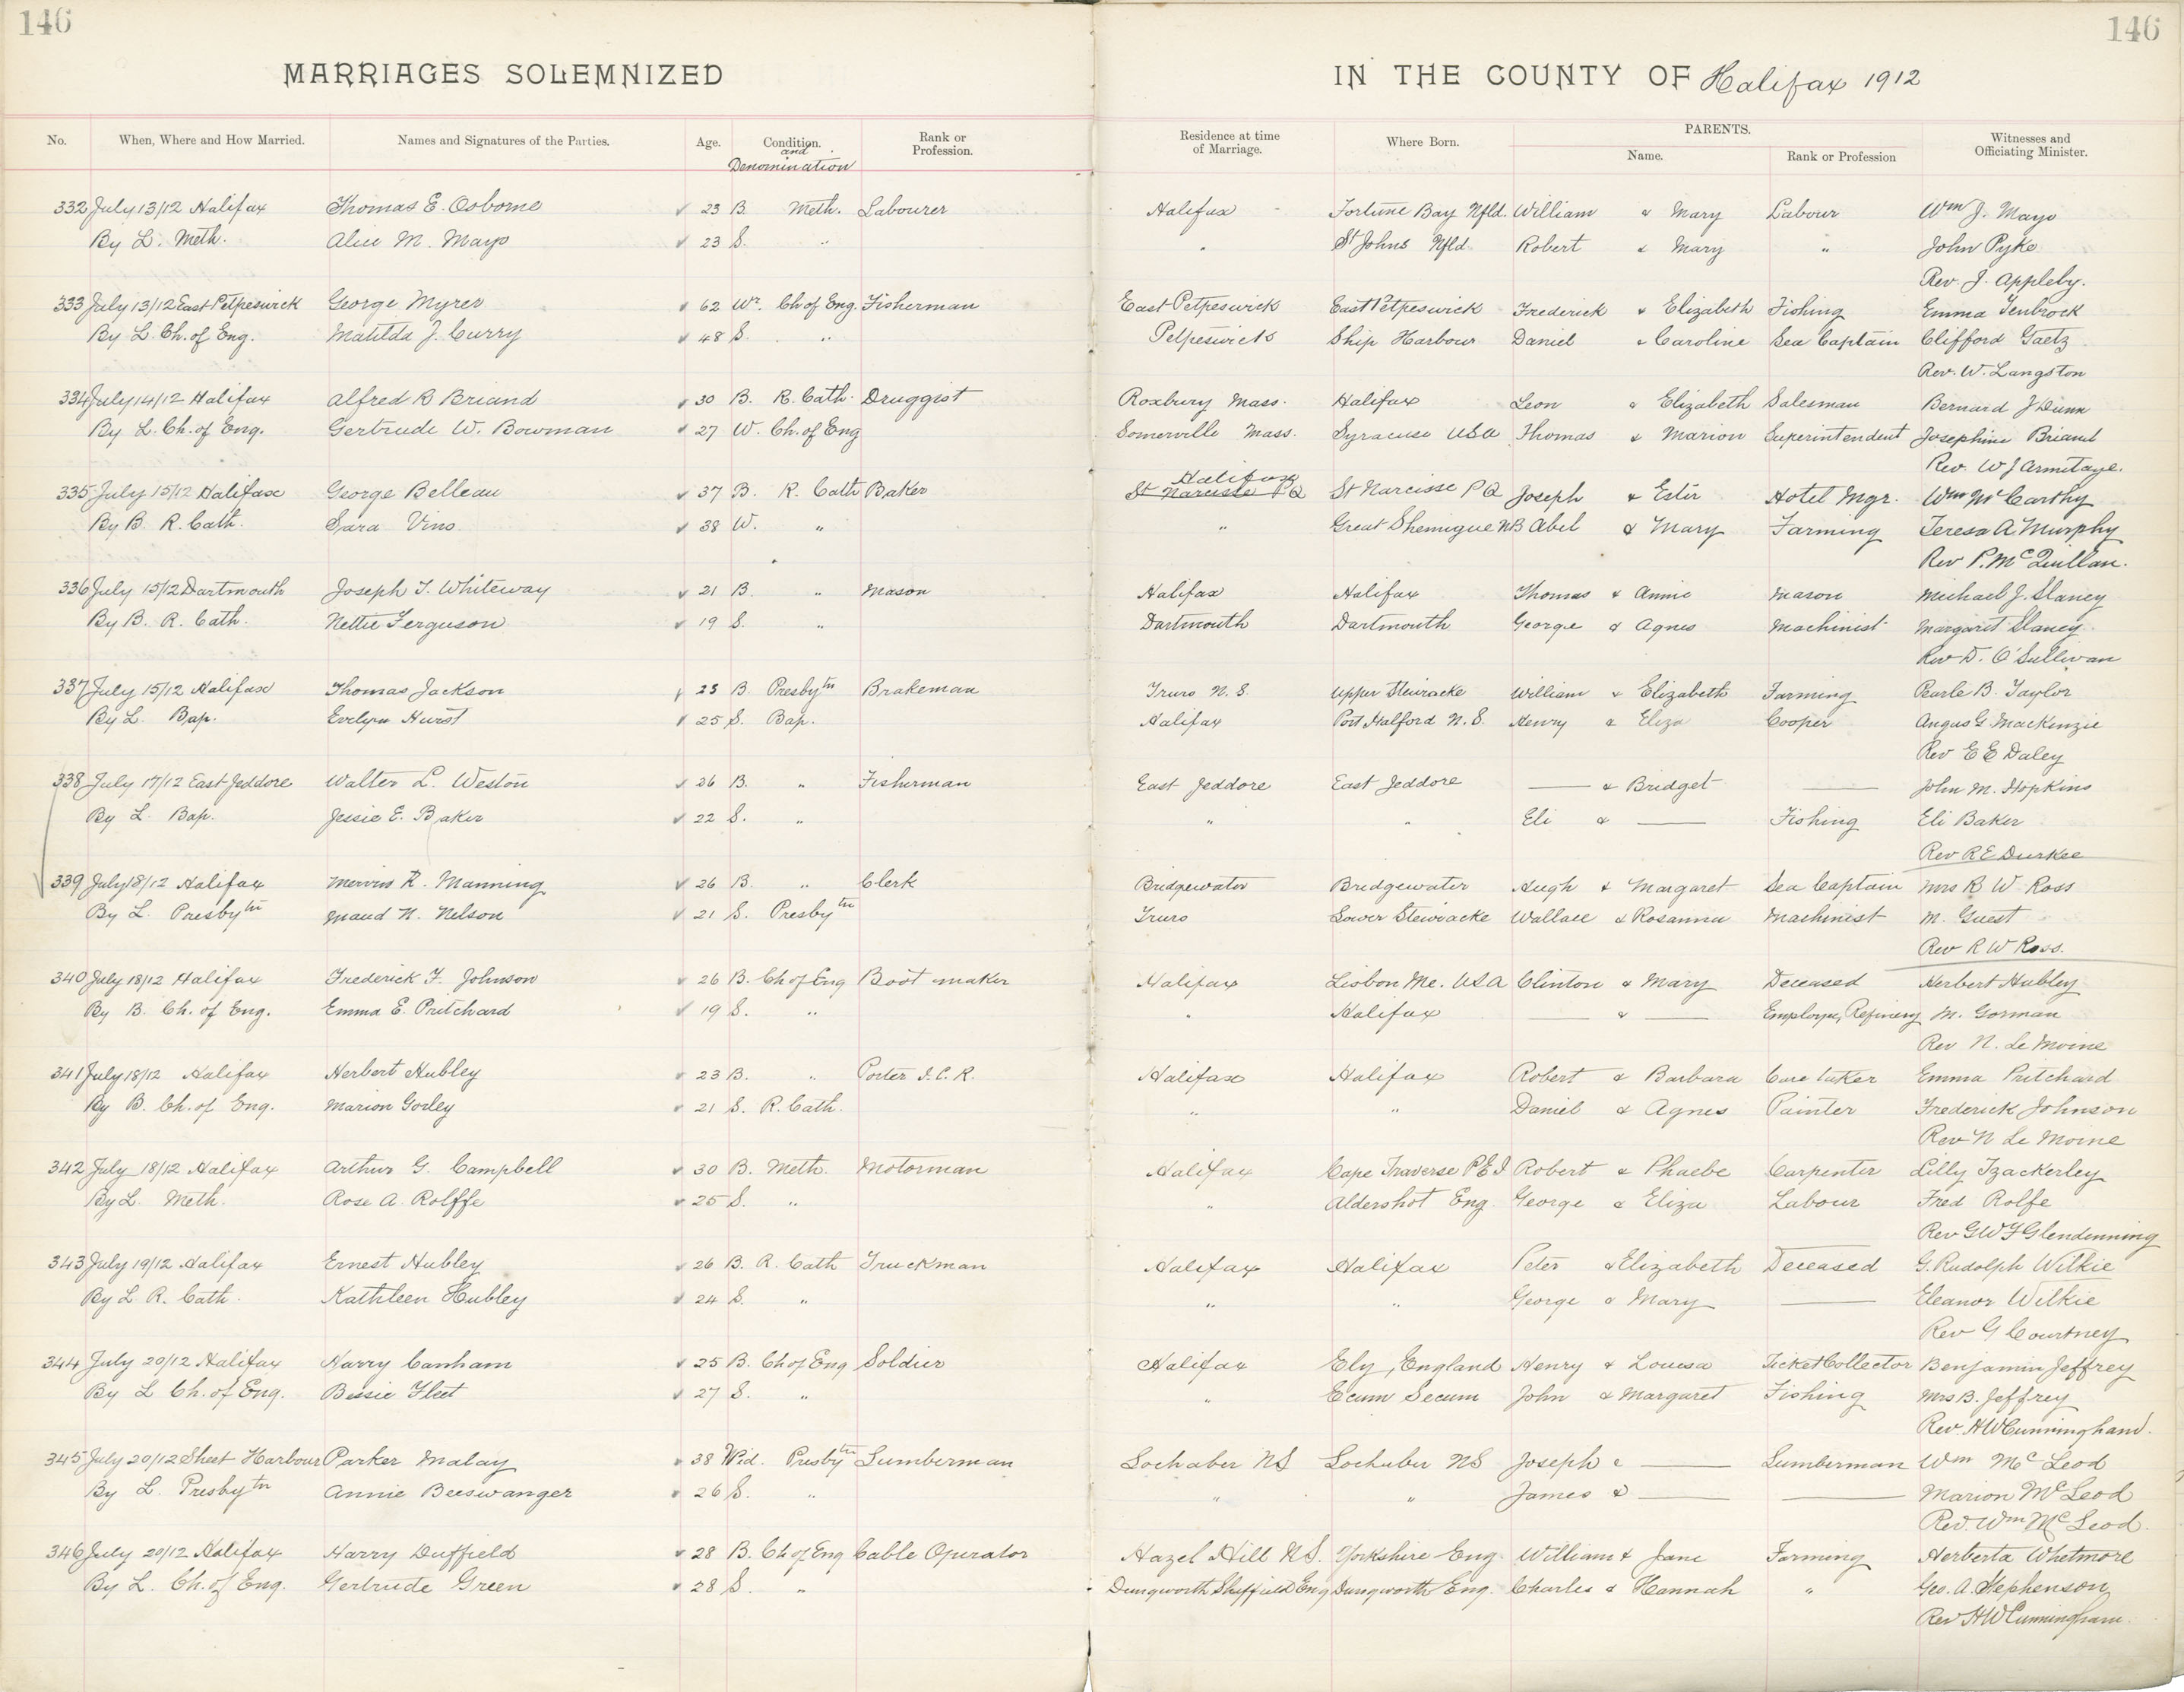 146 146
MARRIAGES SOLEMNIZED IN THE COUNTY OF Halifax 1912
No. When, Where and How Married. Names and Signatures of the Parties. Age. Condition. and Denomination Rank or Profession. Residence at time of Marriage. Where Born. PARENTS. Name. Rank or Profession Witnesses and Officiating Minister.
332 July 13/12 Halifax Thomas E. Osborne 23 B. Meth. Labourer Halifax Fortune Bay Nfld. William & Mary Labour Wm J. Mayo
By L. Meth. Alice M. Mayo 23 S. " " St Johns Nfld Robert & Mary " John Pyke
Rev. J. Appleby.
333 July 13/12 East Petpeswick George Myrer 62 Wr. Ch of Eng. Fisherman East Petpeswick East Petpeswick Frederick & Elizabeth Fishing Emma Tenbrock
By L. Ch. of Eng. Matilda J. Curry 48 S. " Petpeswick Ship Harbour Daniel & Caroline Sea Captain Clifford Gaetz
Rev. W. Langston
334 July 14/12 Halifax Alfred R Briand 30 B. R. Cath. Druggist Roxbury Mass. Halifax Leon & Elizabeth Salesman Bernard J Dunn
By L. Ch. of Eng. Gertrude W. Bowman 27 W. Ch. of Eng Somerville Mass. Syracuse USA Thomas & Marion Superintendent Josephine Briand
Rev. W J Armitage.
Halifax
335 July 15/12 Halifax George Belleau 37 B. R. Cath Baker St Narcisse PQ St Narcisse PQ Joseph & Ester Hotel Mgr. Wm McCarthy
By B. R. Cath. Sara Vino 38 W. " " Great Shemigue NB Abel & Mary Farming Teresa A. Murphy
Rev P. McQuillan.
336 July 15/12 Dartmouth Joseph T. Whiteway 21 B. " Mason Halifax Halifax Thomas & Annie Mason Michael J. Slaney
By B. R. Cath. Nettie Ferguson 19 S. " Dartmouth Dartmouth George & Agnes Machinist Margaret Slaney
Rev D. O'Sullivan
337 July 15/12 Halifax Thomas Jackson 23 B. Presbytn Brakeman Truro N.S. Upper Stewiacke William & Elizabeth Farming Pearle B. Taylor
By L. Bap. Evelyn Hurst 25 S. Bap. Halifax Port Halford N.S. Henry & Eliza Cooper Angus G. MacKenzie
Rev E E Daley
338 July 17/12 East Jeddore Walter L. Weston 26 B. " Fisherman East Jeddore East Jeddore — & Bridget — John M. Hopkins
By L. Bap. Jessie E. Baker 22 S. " " " Eli & — Fishing Eli Baker
Rev R E Durkee
339 July 18/12 Halifax Mervin R. Manning 26 B. " Clerk Bridgewater Bridgewater Hugh & Margaret Sea Captain Mrs R W Ross
By L. Presbytn Maud N. Nelson 21 S. Presbytn Truro Lower Stewiacke Wallace & Rosanna Machinist M. Guest
Rev R W Ross.
340 July 18/12 Halifax Frederick F. Johnson 26 B. Ch of Eng Boot maker Halifax Lisbon Me. USA Clinton & Mary Deceased Herbert Hubley
By B. Ch. of Eng. Emma E. Pritchard 19 S. " " Halifax — & — Employee, Refinery M. Gorman
Rev N. Le Moine
341 July 18/12 Halifax Herbert Hubley 23 B. " Porter I.C.R. Halifax Halifax Robert & Barbara Care taker Emma Pritchard
By B. Ch. of Eng. Marion Gorley 21 S. R. Cath. " " Daniel & Agnes Painter Frederick Johnson
Rev N Le Moine
342 July 18/12 Halifax Arthur G. Campbell 30 B. Meth. Motorman Halifax Cape Traverse P.E.I Robert & Phaebe Carpenter Lilly Tzackerley
By L. Meth. Rose A. Rolffe 25 S. " " Aldershot Eng George & Eliza Labour Fred Rolfe
Rev G W F Glendenning
343 July 19/12 Halifax Ernest Hubley 26 B. R. Cath Truckman Halifax Halifax Peter & Elizabeth Deceased G. Rudolph Wilkie
By L. R. Cath. Kathleen Hubley 24 S. " " " George & Mary — Eleanor Wilkie
Rev G Courtney
344 July 20/12 Halifax Harry Canham 25 B. Ch of Eng Soldier Halifax Ely, England Henry & Louisa Ticket Collector Benjamin Jeffrey
By L Ch. of Eng. Bessie Fleet 27 S. " " Ecum Secum John & Margaret Fishing Mrs B. Jeffrey
Rev. H W Cunningham.
345 July 20/12 Sheet Harbour Parker Malay 38 Wid. Presbytn Lumberman Lochaber NS Lochaber NS Joseph & — Lumberman Wm McLeod
By L. Presbytn Annie Beeswanger 26 S. " " " James & — — Marion McLeod
Rev. Wm McLeod.
346 July 20/12 Halifax Harry Duffield 28 B. Ch of Eng Cable Operator Hazel Hill N.S. Yorkshire Eng. William & Jane Farming Herberta Whetmore
By L. Ch. of Eng. Gertrude Green 28 S. " Dungworth Sheffield Eng Dungworth Eng. Charles & Hannah " Geo. A. Stephenson
Rev H W Cunningham.